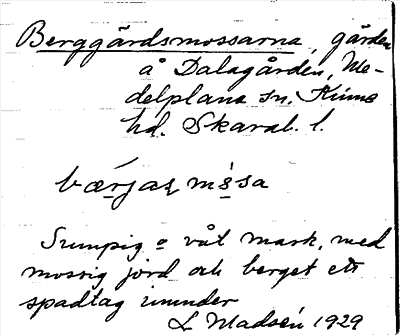 Berggårdsmossarna, gården
å Dalagården, Me-
delplana sn. Kinne
hd. Skarab. l.
bærjas mɔsa
Sumpig o våt mark, med
mossig jord och berget ett
spadtag inunder
L Madsén 1929